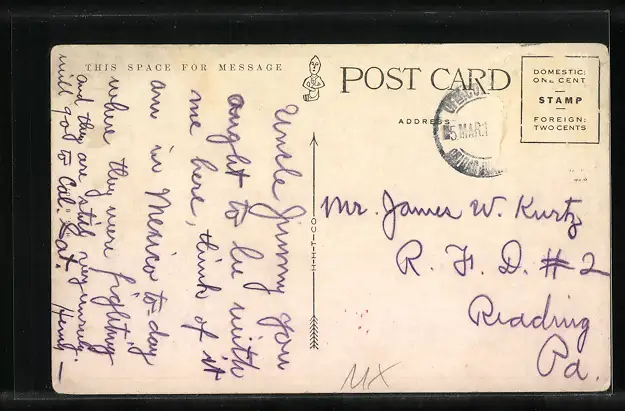 THIS SPACE FOR MESSAGE
Uncle Jimmy you
ought to be with
me here, think of it
am in Mexico to-day
where they were fighting
and they are still very unruly.
will go to Cal. Sat.
POST CARD
ADDRESS
DOMESTIC:
ONE CENT
STAMP
FOREIGN:
TWO CENTS
5 MAR.1
H-H-T-CO
Mr. James W. Kurtz
R. F. D. # 2
Reading
Pa.
MX